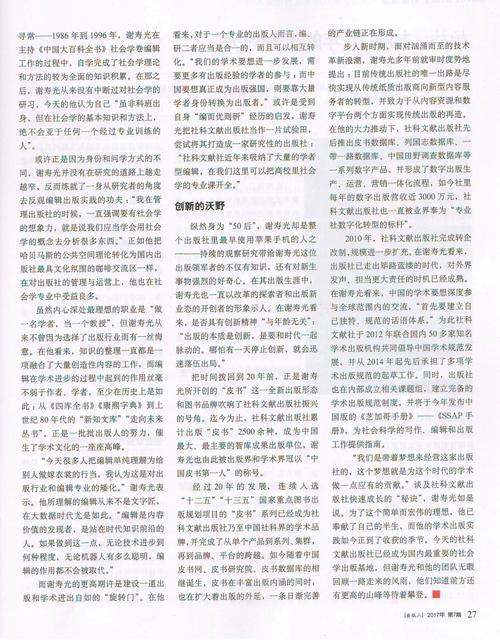 寻常——1986 年到 1996 年，谢寿光在
主持《中国大百科全书》社会学卷编辑
工作的过程中，自学完成了社会学理论
和方法的较为全面的知识积累。在那之
后，谢寿光从来没有中断过对社会学的
研习，今天的他认为自己“虽非科班出
身，但在社会学的基本知识和方法上，
绝不会亚于任何一个经过专业训练的
人”。
或许正是因为身份和同学方式的不
同，谢寿光并没有在研究的道路上越走
越窄，反而练就了一身从研究者的角度
去反观编辑出版实践的功夫：“我在管
理出版社的时候，一直强调要有社会学
的想象力，就是说我们应当学会用社会
学的概念去分析很多东西。”正如他把
哈贝马斯的公共空间理论转化为国内出
版社最具文化氛围的咖啡交流区一样，
在对出版社的管理与运营上，他也在社
会学专业中受益良多。
虽然内心深处最理想的职业是“做
一名学者，当一个教授”，但谢寿光从
来不曾因为选择了出版行业而有一丝悔
意。在他看来，知识的整理一直都是一
项融合了大量创造性内容的工作，而编
辑在学术进步的过程中起到的作用丝毫
不弱于作者、学者，至少在历史上是如
此；从《四库全书》《康熙字典》到上
世纪 80 年代的“新知文库”“走向未来
丛书”，正是一批批出版人的努力，催
生了学术文化的一座座高峰。
“今天很多人把编辑单纯理解为给
别人做嫁衣裳的行当，我认为这是对出
版行业和编辑专业的矮化。”谢寿光表
示。他所理解的编辑从来不是文字匠，
在大数据时代尤是如此。“编辑是内容
价值的发现者，是站在时代知识前沿的
人。如果做到这一点，无论技术进步到
何种程度，无论机器人有多么聪明，编
辑的作用都不会被取代。”
而谢寿光的更高期许是建设一道出
版和学术进出自如的“旋转门”。在他
看来，对于一个专业的出版人而言，编、
研二者应当是合一的，而且可以相互转
化。“我们的学术要想进一步发展，需
要更多有出版经验的学者的参与；而中
国要想真正成为出版强国，则要靠大量
学者身份转换为出版者。”或许是受到
自身“编而优则研”经历的启发，谢寿
光把社科文献出版社当作一片试验田，
尝试将其打造成一家研究性的出版社：
“社科文献社近年来吸纳了大量的学者
型编辑，在我们这里可以把高校里社会
学的专业课开全。”
创新的沃野
纵然身为“50 后”，谢寿光却是整
个出版社里最早使用苹果手机的人之一
——持续的观察研究带给谢寿光这位
出版领军者的不仅有知识，还有对新生
事物强烈的好奇心。在其出版生涯中，
谢寿光也一直以改革的探索者和出版新
业态的开创者的形象示人。在谢寿光看
来，是否具有创新精神“与年龄无关”：
“出版的本质是创新，是要和时代一起
脉动的。哪怕有一天停止创新，就会迅
速落伍出局。”
把时间拨回到 20 年前，正是谢寿
光所开创的“皮书”这一全新出版形态
和图书品牌吹响了社科文献出版社振兴
的号角。迄今为止，社科文献出版社累
计出版“皮书”2500 余种，成为中国
最大、最主要的智库成果出版单位，谢
寿光也由此被出版界和学术界冠以“中
国皮书第一人”的称号。
经过 20 年的发展，连续入选
“十二五”“十三五”国家重点图书出
版规划项目的“皮书”系列已经成为社
科文献出版社乃至中国社科界的学术品
牌，并完成了从单个产品到系列、集群，
再到品牌、平台的跨越。如今随着中国
皮书网、皮书研究院、皮书数据库的相
继诞生，皮书在丰富出版内涵的同时，
也在扩大着出版的外延，一条日渐完善
的产业链正在形成。
步入新时期，面对汹涌而至的技术
革新浪潮，谢寿光多年前就审时度势地
提出：目前传统出版社的唯一出路是尽
快实现从传统纸质出版商向新型内容服
务者的转型，并致力于从内容资源和数
字平台两个方面实现传统出版的再造。
在他的大力推动下，社科文献出版社先
后推出皮书数据库、列国志数据库、一
带一路数据库、中国田野调查数据库等
一系列数字产品，并形成了数字出版生
产、运营、营销一体化流程，如今社里
每年的数字出版营收近 3000 万元，社
科文献出版社也一直被业界奉为“专业
社数字化转型的标杆”。
2010 年，社科文献出版社完成转企
改制，规模进一步扩充。在谢寿光看来，
出版社已走出筚路蓝缕的时代，对外界
发声、担当更大责任的时机已经成熟。
在谢寿光看来，中国的学术要想深度参
与全球范围内的交流，“首先要建立自
己独特、规范的话语体系。”为此社科
文献社于 2012 年联合国内 50 多家知名
学术出版机构共同倡导中国学术规范发
展，并从 2014 年起先后承担了多项学
术出版规范的起草工作。同时，出版社
也在内部成立相关课题组，建立完备的
学术出版规范制度，并将于今年发布中
国版的《芝加哥手册》——《SSAP 手
册》，为社会科学的写作、编辑和出版
工作提供指南。
“我们是带着梦想来经营这家出版
社的，这个梦想就是为这个时代的学术
做一点应有的贡献。”谈及社科文献出
版社快速成长的“秘诀”，谢寿光如是
说。为了这个简而宏伟的理想，他已
奉献了自己的半生，而他的学术出版实
践如今正到了收获的季节。今天的社科
文献出版社已经成为国内最重要的社会
学出版基地，但谢寿光和他的团队无暇
回顾一路走来的风雨，他们知道前方还
有更高的山峰等待着攀登。
[出版人] 2017年 第7期 27